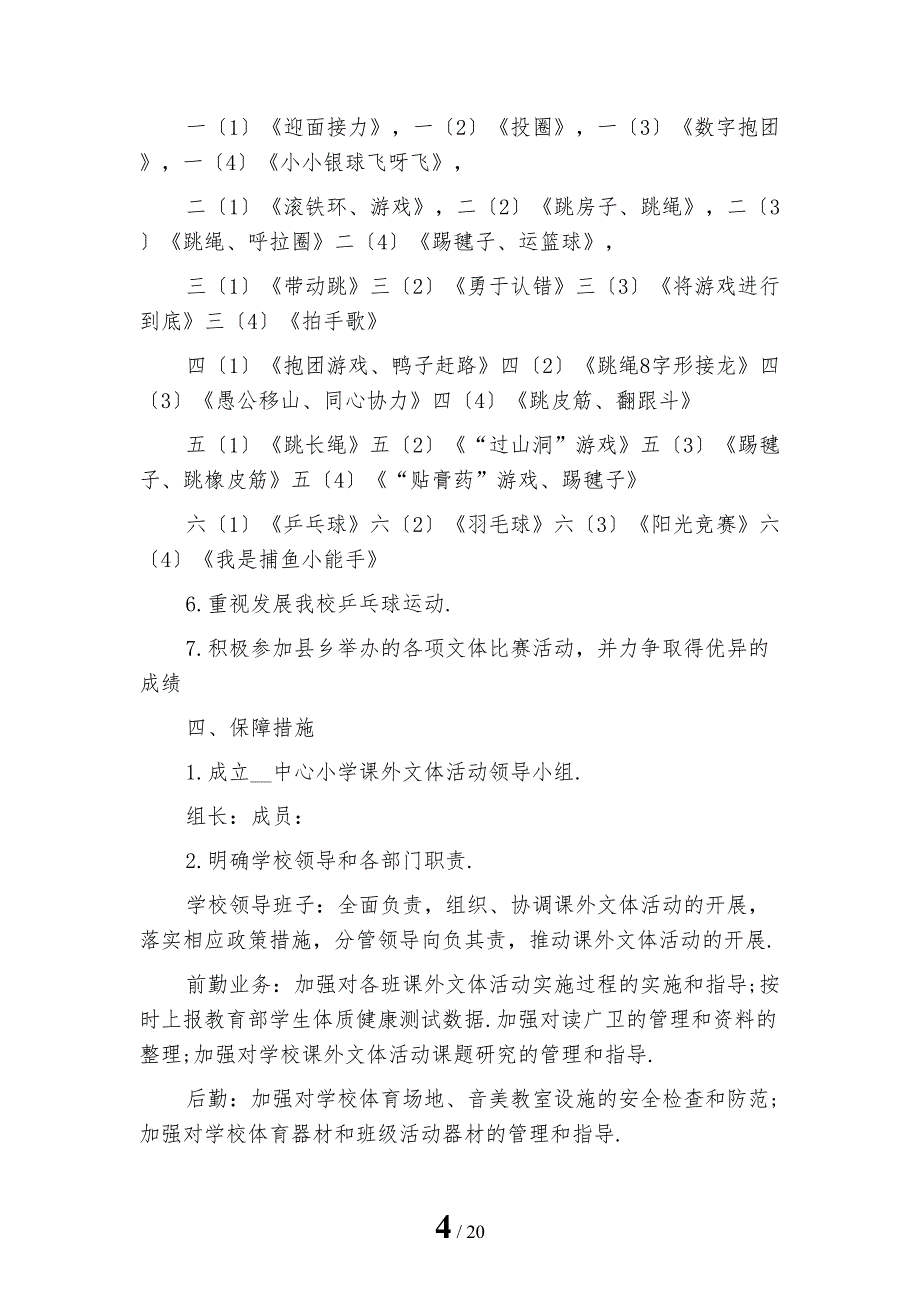 一〔1〕《迎面接力》，一〔2〕《投圈》，一〔3〕《数字抱团
》，一〔4〕《小小银球飞呀飞》，
二〔1〕《滚铁环、游戏》，二〔2〕《跳房子、跳绳》，二〔3
〕《跳绳、呼拉圈》二〔4〕《踢毽子、运篮球》，
三〔1〕《带动跳》三〔2〕《勇于认错》三〔3〕《将游戏进行
到底》三〔4〕《拍手歌》
四〔1〕《抱团游戏、鸭子赶路》四〔2〕《跳绳8字形接龙》四
〔3〕《愚公移山、同心协力》四〔4〕《跳皮筋、翻跟斗》
五〔1〕《跳长绳》五〔2〕《“过山洞”游戏》五〔3〕《踢毽
子、跳橡皮筋》五〔4〕《“贴膏药”游戏、踢毽子》
六〔1〕《乒乓球》六〔2〕《羽毛球》六〔3〕《阳光竞赛》六
〔4〕《我是捕鱼小能手》
6.重视发展我校乒乓球运动.
7.积极参加县乡举办的各项文体比赛活动，并力争取得优异的
成绩
四、保障措施
1.成立__中心小学课外文体活动领导小组.
组长：成员：
2.明确学校领导和各部门职责.
学校领导班子：全面负责，组织、协调课外文体活动的开展，
落实相应政策措施，分管领导向负其责，推动课外文体活动的开展.
前勤业务：加强对各班课外文体活动实施过程的实施和指导;按
时上报教育部学生体质健康测试数据.加强对读广卫的管理和资料的
整理;加强对学校课外文体活动课题研究的管理和指导.
后勤：加强对学校体育场地、音美教室设施的安全检查和防范;
加强对学校体育器材和班级活动器材的管理和指导.
4 / 20